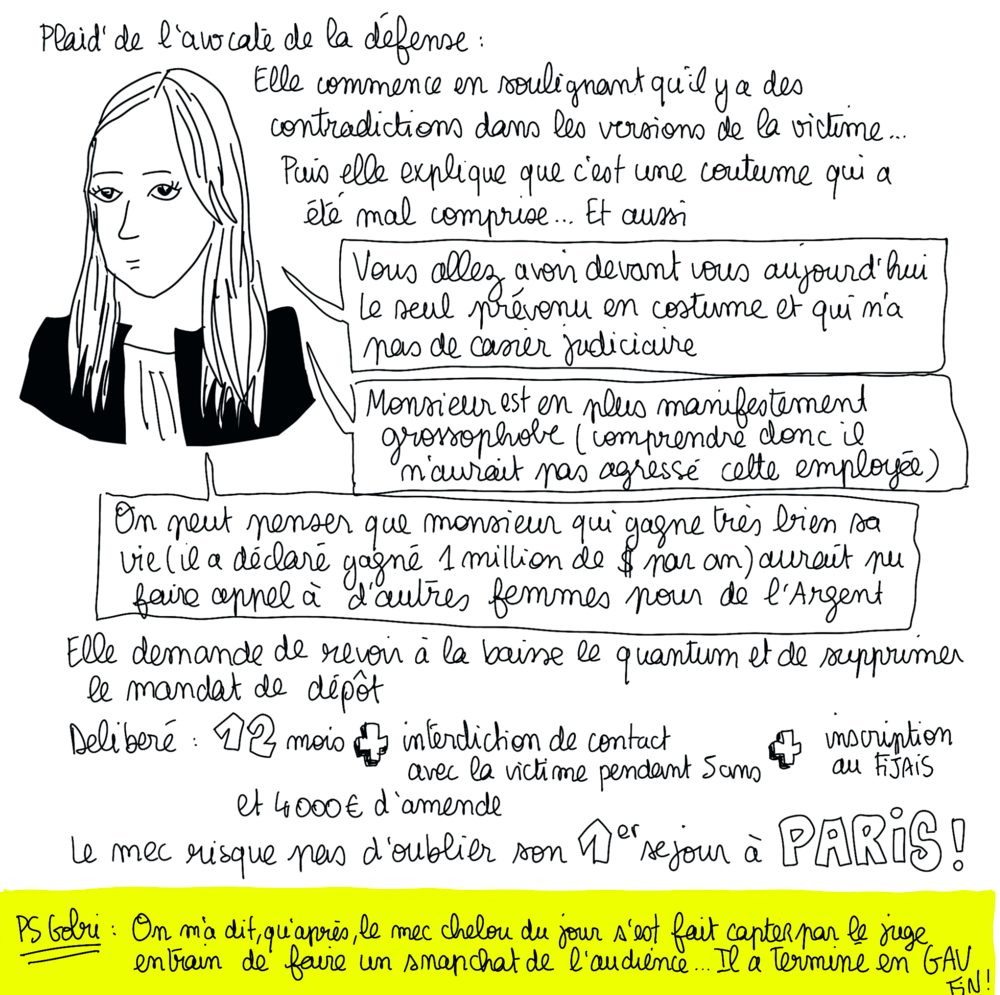 Plaid' de l'avocate de la défense :
Elle commence en soulignant qu'il y a des
contradictions dans les versions de la victime...
Puis elle explique que c'est une coutume qui a
été mal comprise... Et aussi
Vous allez avoir devant vous aujourd'hui
le seul prévenu en costume et qui n'a
pas de casier judiciaire
Monsieur est en plus manifestement
grossophobe (comprendre donc il
n'aurait pas agressé cette employée)
On peut penser que monsieur qui gagne très bien sa
vie (il a déclaré gagné 1 million de $ par an) aurait pu
faire appel à d'autres femmes pour de l'Argent
Elle demande de revoir à la baisse le quantum et de supprimer
le mandat de dépôt
Delibéré : 12 mois + interdiction de contact + inscription
avec la victime pendant 5 ans au FIJAIS
et 4000€ d'amende
Le mec risque pas d'oublier son 1er sejour à PARiS !
PS Gobri : On m'a dit, qu'après, le mec chelou du jour s'est fait capter par le juge
entrain de faire un snapchat de l'audience... Il a terminé en GAV
FiN !